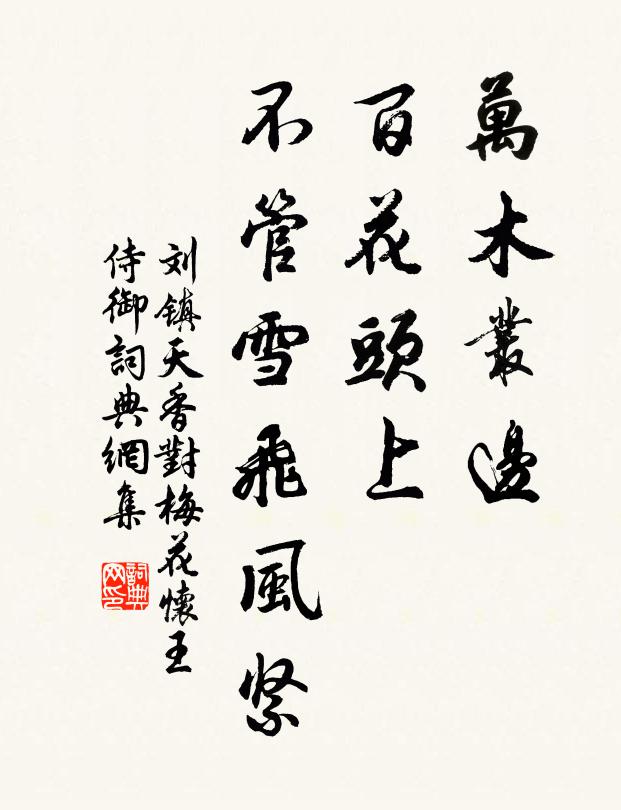 萬木叢邊
百花頭上
不管雪飛風緊
刘镇天香對梅花懷王
侍御詞典網集
詞典网印